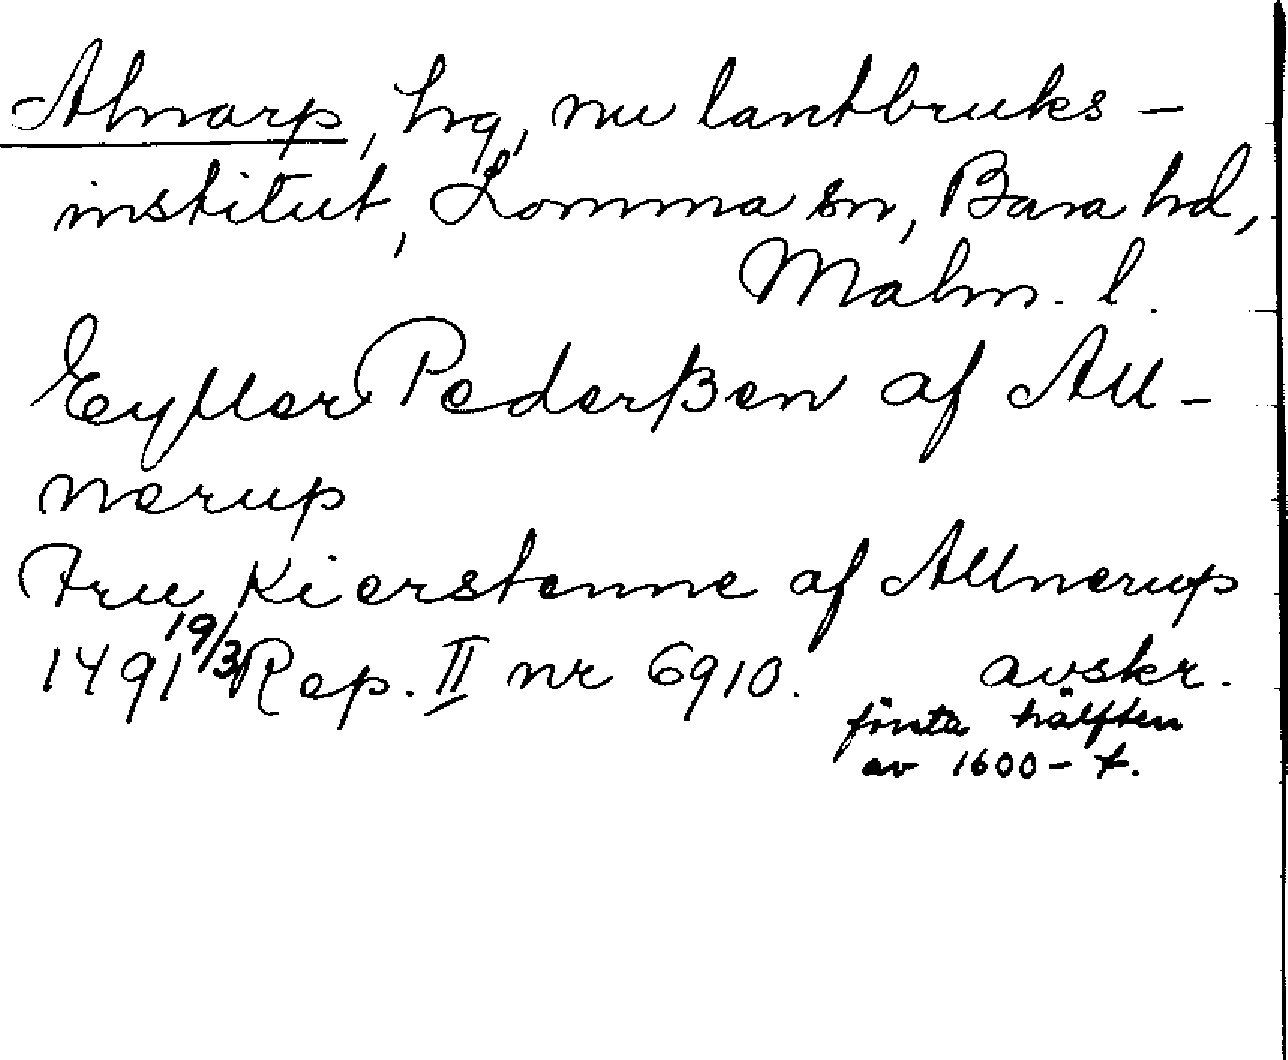 Alnarp, hg, nu lantbruks-
institut, Lomma sn, Bara hd,
Malm. l.
Eyller Pederßen af All-
nerup
Fru Kierstenne af Allnerup
1491 19/3 Rep. II nr 6910. avskr.
första hälften
av 1600-t.